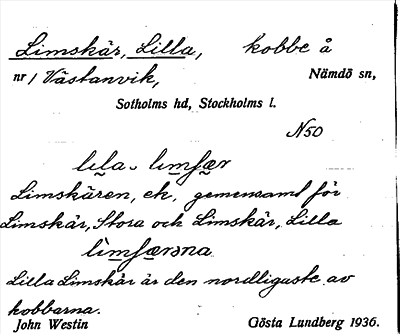 Limskär, Lilla, kobbe å
nr 1 Västanvik, Nämdö sn,
Sotholms hd, Stockholms l.
N50
Limskären, ek, gemensamt för
Limskär, Stora och Limskär, Lilla
Lilla Limskär är den nordligaste av
kobbarna.
John Westin Gösta Lundberg 1936.